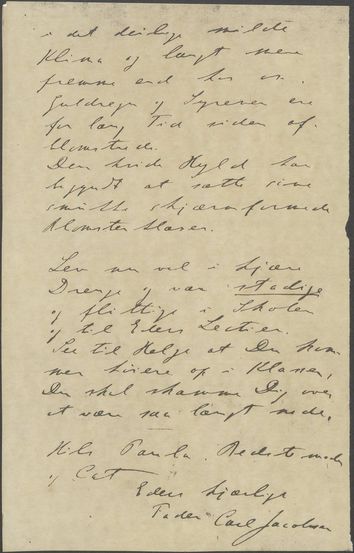 i det deilige milde
Klima og langt mere
fremme end her os.
Guldregn og Syrener ere
for lang Tid siden af-
blomstrede.
Den hvide Hyld har
begyndt at sætte sine
smukke skjærmformede
Blomster klaser.
Lev nu vel i kjære
Drenge og vær stadige
og flittige i Skolen
og til Eders Lectier.
See til Helge at Du kom
mer høiere op i Klassen,
Du skal skamme Dig over
at være saa langt nede.
Hils Paula, Bedstemoder
og Cat
Eders kjærlige
Fader Carl Jacobsen